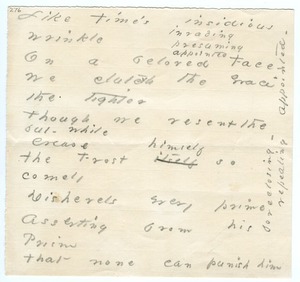 276
Like time's insidious
wrinkle invading
presuming
appointed
On a beloved Face
we clutch the Grace
the tighter
though we resent the
out-while
crease himself
the Frost itself so
comely
Dishevels every prime
Asserting from his
Prism
that none can punish him
foreclosing -
repealing
appointed -